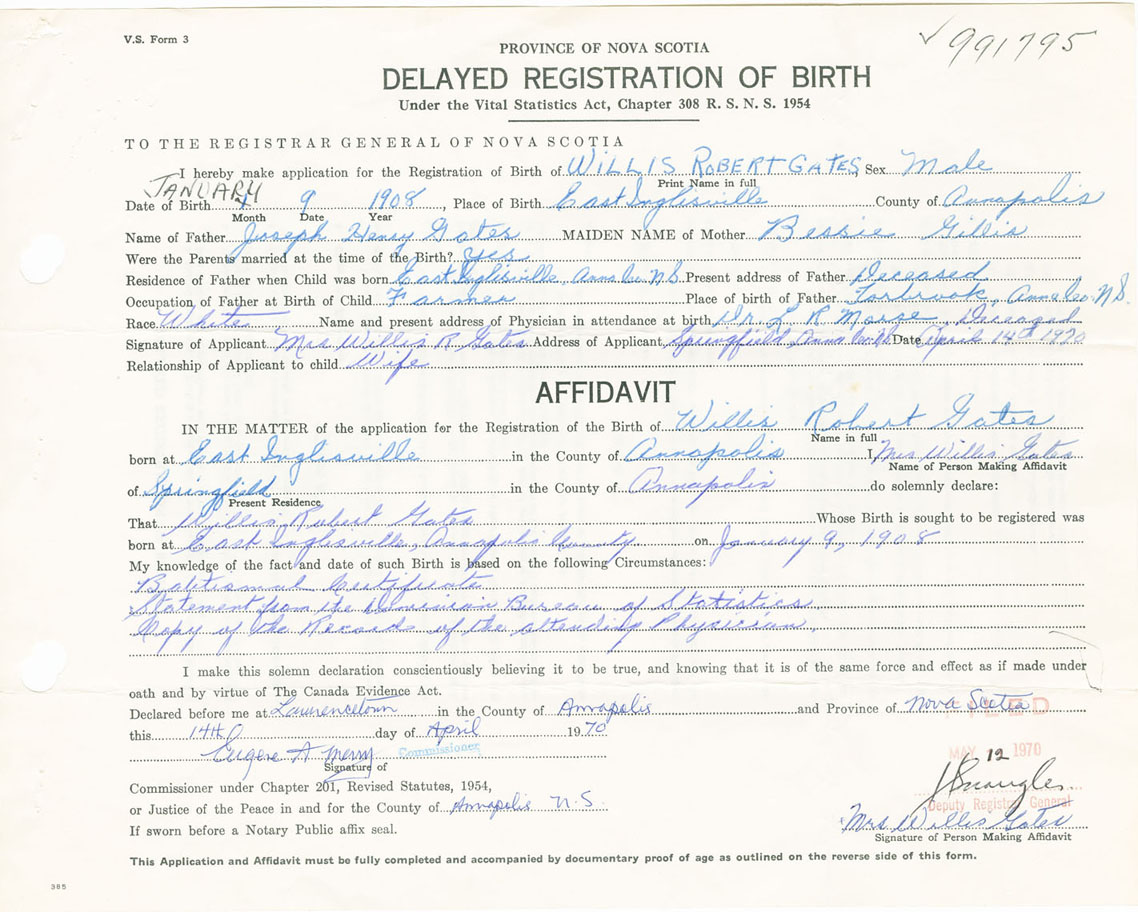 V.S. Form 3
991795
PROVINCE OF NOVA SCOTIA
DELAYED REGISTRATION OF BIRTH
Under the Vital Statistics Act, Chapter 308 R. S. N. S. 1954
TO THE REGISTRAR GENERAL OF NOVA SCOTIA
I hereby make application for the Registration of Birth of WILLIS ROBERT GATES Sex Male
Print Name in full
JANUARY
Date of Birth 9 1908, Place of Birth East Inglisville County of Annapolis
Month Date Year
Name of Father Joseph Henry Gates MAIDEN NAME of Mother Bessie Gillis
Were the Parents married at the time of the Birth? Yes
Residence of Father when Child was born East Inglisville, Anna Co. N.S. Present address of Father Deceased
Occupation of Father at Birth of Child Farmer Place of birth of Father Torbrook, Anna Co. N.S.
Race White Name and present address of Physician in attendance at birth Dr. L R Morse, Deceased
Signature of Applicant Mrs Willis R. Gates Address of Applicant Springfield, Anna Co. N.S. Date April 14th 1970
Relationship of Applicant to child Wife
AFFIDAVIT
IN THE MATTER of the application for the Registration of the Birth of Willis Robert Gates
Name in full
born at East Inglisville in the County of Annapolis I, Mrs Willis Gates
Name of Person Making Affidavit
of Springfield in the County of Annapolis do solemnly declare:
Present Residence
That Willis Robert Gates Whose Birth is sought to be registered was
born at East Inglisville, Annapolis County on January 9, 1908
My knowledge of the fact and date of such Birth is based on the following Circumstances:
Batismal Certificate
Statement from the Dominion Bureau of Statistics
Copy of the Records of the attending Physician.
I make this solemn declaration conscientiously believing it to be true, and knowing that it is of the same force and effect as if made under
oath and by virtue of The Canada Evidence Act.
Declared before me at Lawrencetown in the County of Annapolis and Province of Nova Scotia
FILED
this 14th day of April 1970
Eugene A Merry Commissioner
MAY 12 1970
Signature of
Commissioner under Chapter 201, Revised Statutes, 1954,
or Justice of the Peace in and for the County of Annapolis N.S.
Deputy Registrar General
Mrs Willis Gates
If sworn before a Notary Public affix seal.
Signature of Person Making Affidavit
This Application and Affidavit must be fully completed and accompanied by documentary proof of age as outlined on the reverse side of this form.
385